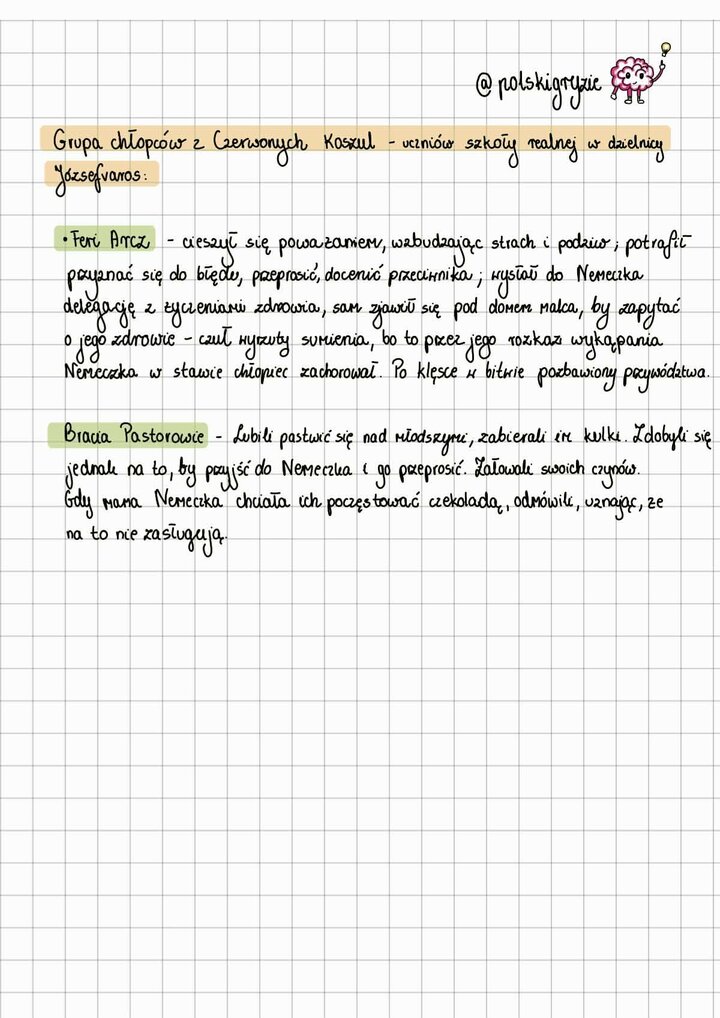 @polskigryzie
Grupa chłopców z Czerwonych Koszul - uczniów szkoły realnej w dzielnicy
Józsefvaros:
• Feri Arcz - cieszył się poważaniem, wzbudzając strach i podziw; potrafił
przyznać się do błędu, przeprosić, docenić przeciwnika; wysłał do Nemeczka
delegację z życzeniami zdrowia, sam zjawił się pod domem malca, by zapytać
o jego zdrowie - czuł wyrzuty sumienia, bo to przez jego rozkaz wykąpania
Nemeczka w stawie chłopiec zachorował. Po klęsce w bitwie pozbawiony przywództwa.
Bracia Pastorowie - Lubili pastwić się nad młodszymi, zabierali im kulki. Zdobyli się
jednak na to, by przyjść do Nemeczka i go przeprosić. Żałowali swoich czynów.
Gdy mama Nemeczka chciała ich poczęstować czekoladą, odmówili, uznając, że
na to nie zasługują.